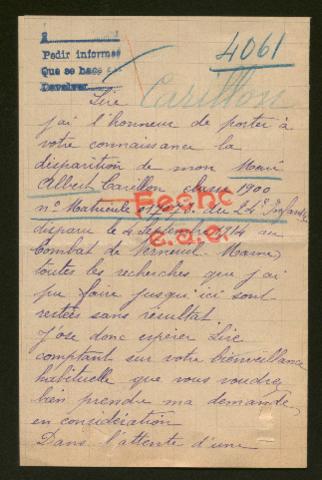 2
Pedir informes
Que se hace
Devolver
4061
Carillon
Sire
j'ai l'honneur de porter à
votre connaissance la
disparition de mon Mari
Albert Carillon classe 1900
n° Matricule du 24e Infanterie
disparu le 4 Septembre 1914 au
Combat de Verneuil Marne
toutes les recherches que j'ai
pu faire jusqu'ici sont
restées sans résultat
J'ose donc espérer Sire
comptant sur votre bienveillance
habituelle que vous voudrez
bien prendre ma demande
en considération
Dans l'attente d'une